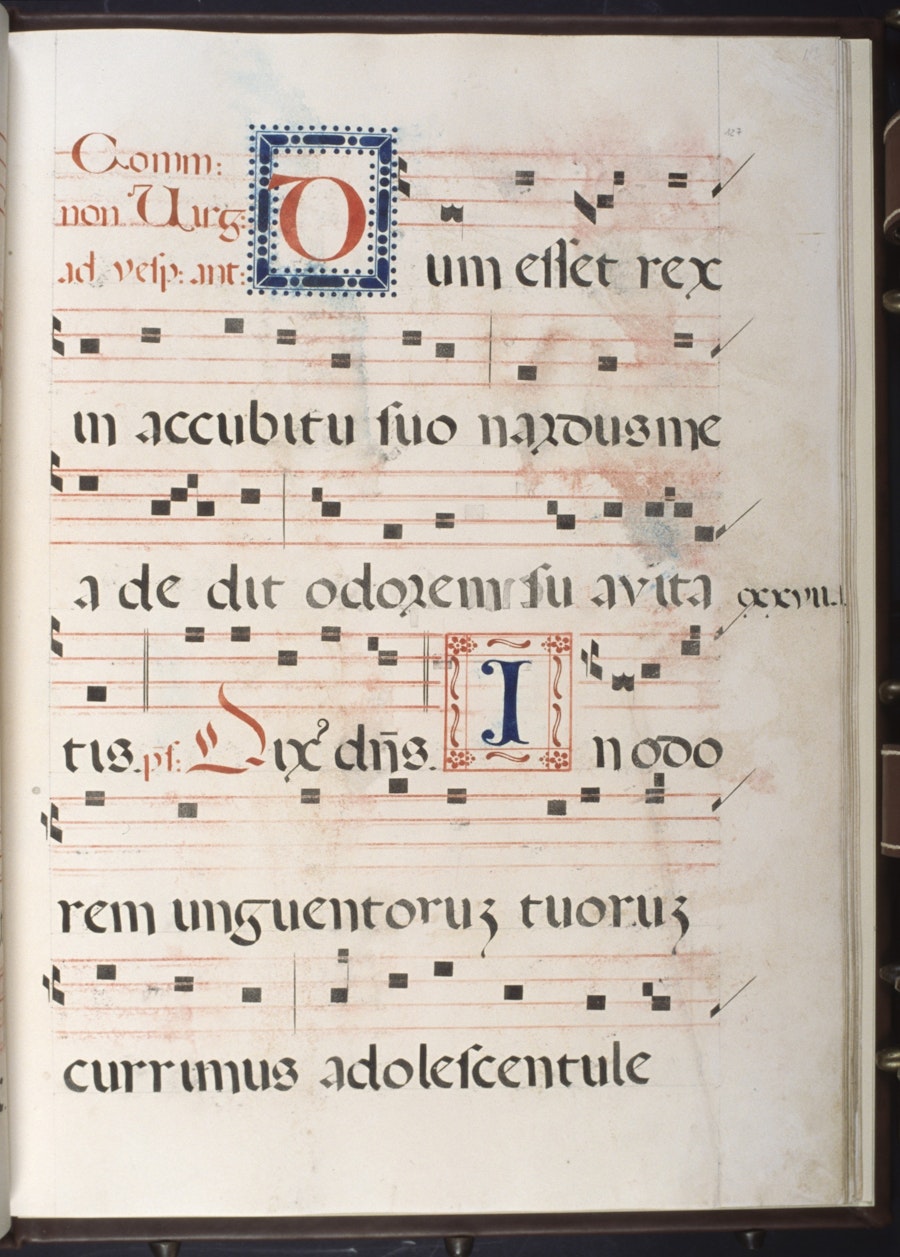 Comm:
non Uirg:
ad vesp: ant:
Dum esset rex
in accubitu suo nardus me
a de dit odorem su avita
cxxvii.
tis. ps: Dix dn̄s. In odo
rem unguentoruꝫ tuoruꝫ
currimus adolescentule
127